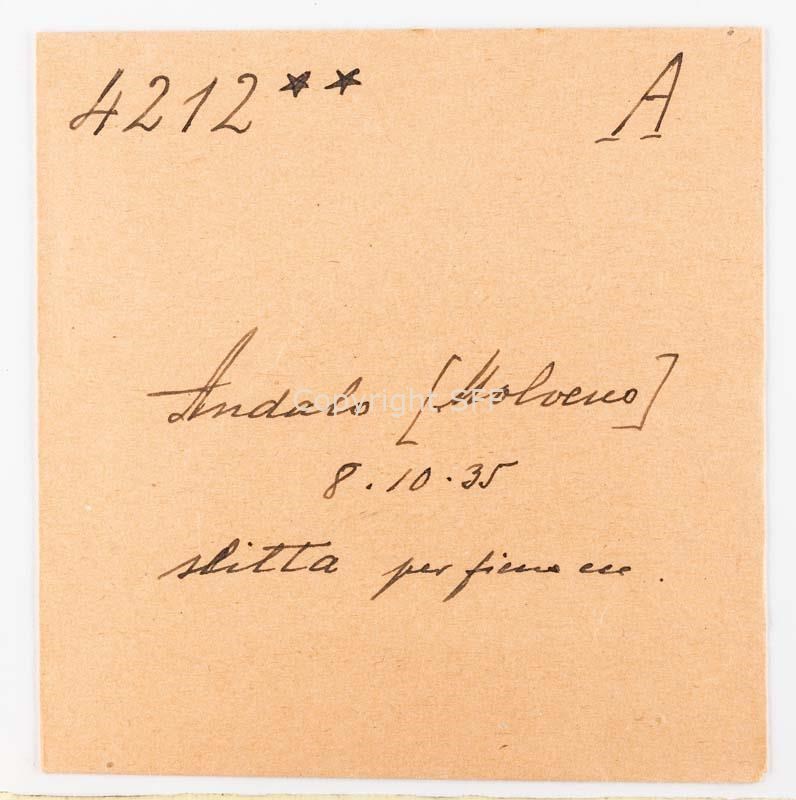 4212** A
Andalo [Molveno]
8.10.35
slitta per fieno ecc.
Copyright SFP